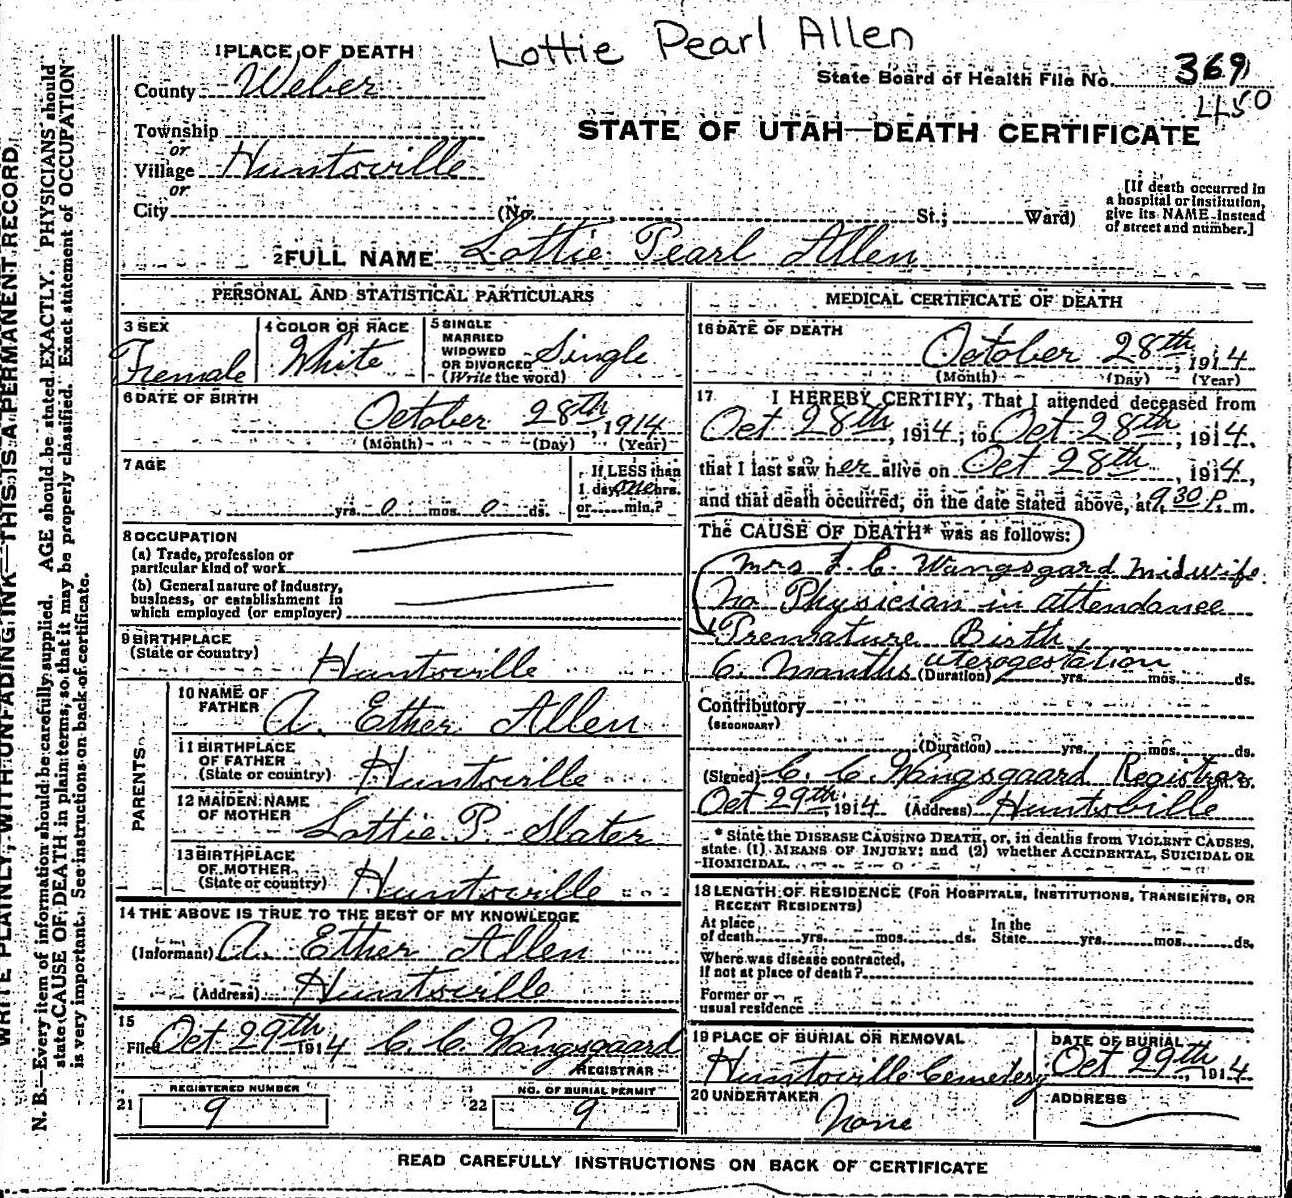 Lottie Pearl Allen
1 PLACE OF DEATH
County Weber
State Board of Health File No. 369
450
Township
or
Village Huntsville
or
City (No. St.; Ward)
STATE OF UTAH—DEATH CERTIFICATE
[If death occurred in
a hospital or institution,
give its NAME instead
of street and number.]
2 FULL NAME Lottie Pearl Allen
PERSONAL AND STATISTICAL PARTICULARS
3 SEX
Female
4 COLOR OR RACE
White
5 SINGLE
MARRIED
WIDOWED
OR DIVORCED
(Write the word)
Single
6 DATE OF BIRTH
October 28th, 1914
(Month) (Day) (Year)
7 AGE
yrs. 0 mos. 0 ds.
If LESS than
1 day, one hrs.
or min.?
8 OCCUPATION
(a) Trade, profession or
particular kind of work
(b) General nature of Industry,
business, or establishment in
which employed (or employer)
9 BIRTHPLACE
(State or country)
Huntsville
PARENTS
10 NAME OF
FATHER
A. Ether Allen
11 BIRTHPLACE
OF FATHER
(State or country)
Huntsville
12 MAIDEN NAME
OF MOTHER
Lottie P. Slater
13 BIRTHPLACE
OF MOTHER
(State or country)
Huntsville
14 THE ABOVE IS TRUE TO THE BEST OF MY KNOWLEDGE
(Informant) A. Ether Allen
(Address) Huntsville
15
Filed Oct 29th 1914 C. C. Wangsgaard
REGISTRAR
REGISTERED NUMBER
21 9
NO. OF BURIAL PERMIT
22 9
MEDICAL CERTIFICATE OF DEATH
16 DATE OF DEATH
October 28th, 1914
(Month) (Day) (Year)
17 I HEREBY CERTIFY, That I attended deceased from
Oct 28th, 1914, to Oct 28th, 1914.
that I last saw her alive on Oct 28th, 1914,
and that death occurred, on the date stated above, at 9.30 P. m.
The CAUSE OF DEATH* was as follows:
Mrs F. C. Wangsgaard Midwife.
No Physician in attendance
Premature Birth,
6. Months uterogestation
(Duration) yrs. mos. ds.
Contributory
(SECONDARY)
(Duration) yrs. mos. ds.
(Signed) C. C. Wangsgaard Registrar M. D.
Oct 29th, 1914 (Address) Huntsville
* State the DISEASE CAUSING DEATH, or, in deaths from VIOLENT CAUSES,
state (1) MEANS OF INJURY; and (2) whether ACCIDENTAL, SUICIDAL OR
HOMICIDAL.
18 LENGTH OF RESIDENCE (FOR HOSPITALS, INSTITUTIONS, TRANSIENTS, OR
RECENT RESIDENTS)
At place
of death yrs. mos. ds.
In the
State yrs. mos. ds.
Where was disease contracted,
if not at place of death?
Former or
usual residence
19 PLACE OF BURIAL OR REMOVAL
Huntsville Cemetery
DATE OF BURIAL
Oct 29th, 1914
20 UNDERTAKER
None
ADDRESS
READ CAREFULLY INSTRUCTIONS ON BACK OF CERTIFICATE
WRITE PLAINLY, WITH UNFADING INK—THIS IS A PERMANENT RECORD.
N. B.—Every item of information should be carefully supplied. AGE should be stated EXACTLY. PHYSICIANS should
state CAUSE OF DEATH in plain terms, so that it may be properly classified. Exact statement of OCCUPATION
is very important. See instructions on back of certificate.